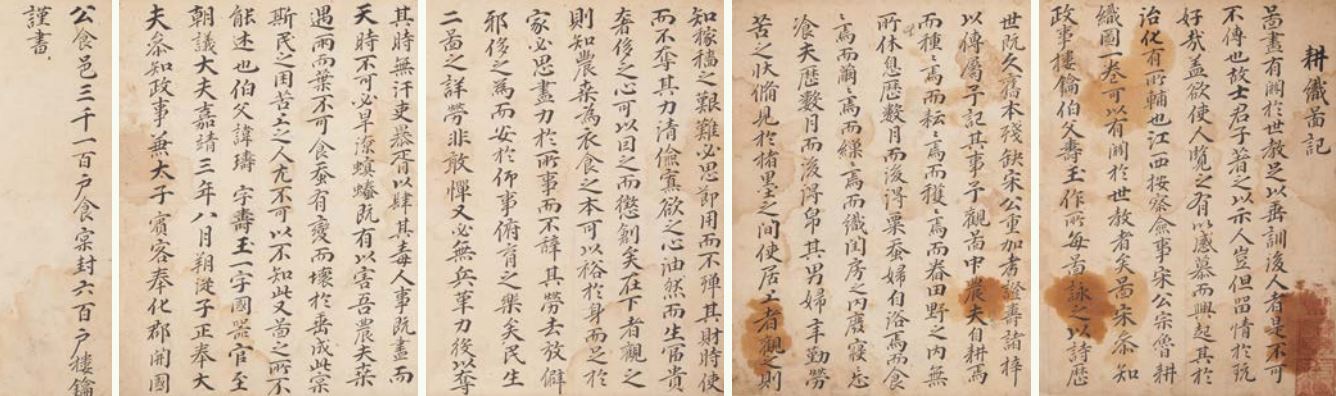 耕織啚記
啚畫有関於世教足以垂訓後人者是不可
不傳也故士君子著之以示人豈但留情於玩
好㢤盖欲使人覧之有以感慕而興起其於
治化有所輔也江西按察僉事宋公宗魯耕
織圖一巻可以有関於世教者矣啚宋叅知
政事樓鑰伯父壽玉作所每啚詠之以詩歴
世既久舊本殘缺宋公重加考證壽諸梓
以傳屬予記其事予觀啚中農夫自耕焉
而種〻焉而耘〻焉而穫〻焉而舂田野之内無
所休息歴數月而後淂粟蚕婦自浴焉而食
〻焉而繭〻焉而繰〻焉而織閨房之内廢寝忘
飡夫歴數月而後淂帛其男婦辛勤勞
苦之状俻見於楮墨之間使居上者觀之則
知稼穡之艱難必思節用而不殫其財時使
而不奪其力清儉寡欲之心油然而生冨貴
奢侈之心可以因之而懲創矣在下者觀之
則知農桑為衣食之本可以裕於身而足於
家必思盡力於所事而不辞其勞去放僻
邪侈之為而安於仰事俯育之樂矣民生
二啚之詳勞非敢憚又必無兵革力役以奪
其時無汗吏暴胥以肆其毒人事既盡而
天時不可必旱潦螟蝝既有以害吾農夫桒
遇雨而葉不可食蚕有變而壞於垂成此寔
斯民之困苦上之人尤不可以不知此又啚之所不
能述也伯父諱璹字壽玉一字國器官至
朝議大夫嘉靖三年八月朔從子正奉大
夫叅知政事兼太子賓客奉化郡開國
公食邑三千一百户食寔封六百户樓鑰
謹書